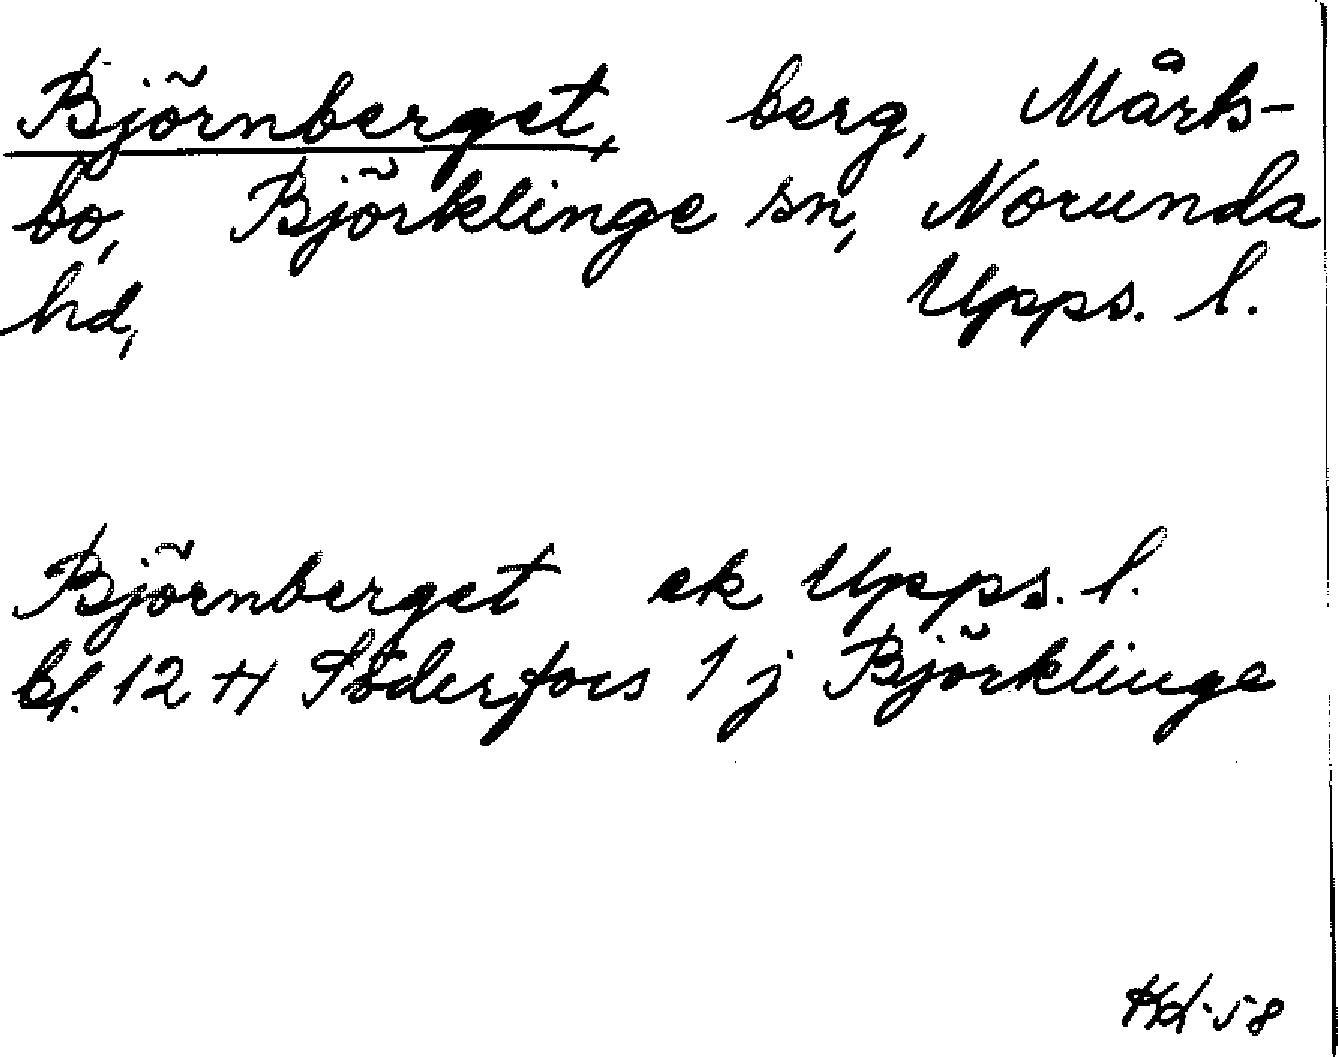 Björnberget, berg, Mårts-
bo, Björklinge sn, Norunda
hd, Upps. l.
Björnberget ek Upps. l.
bl. 12 H Söderfors 1 j Björklinge